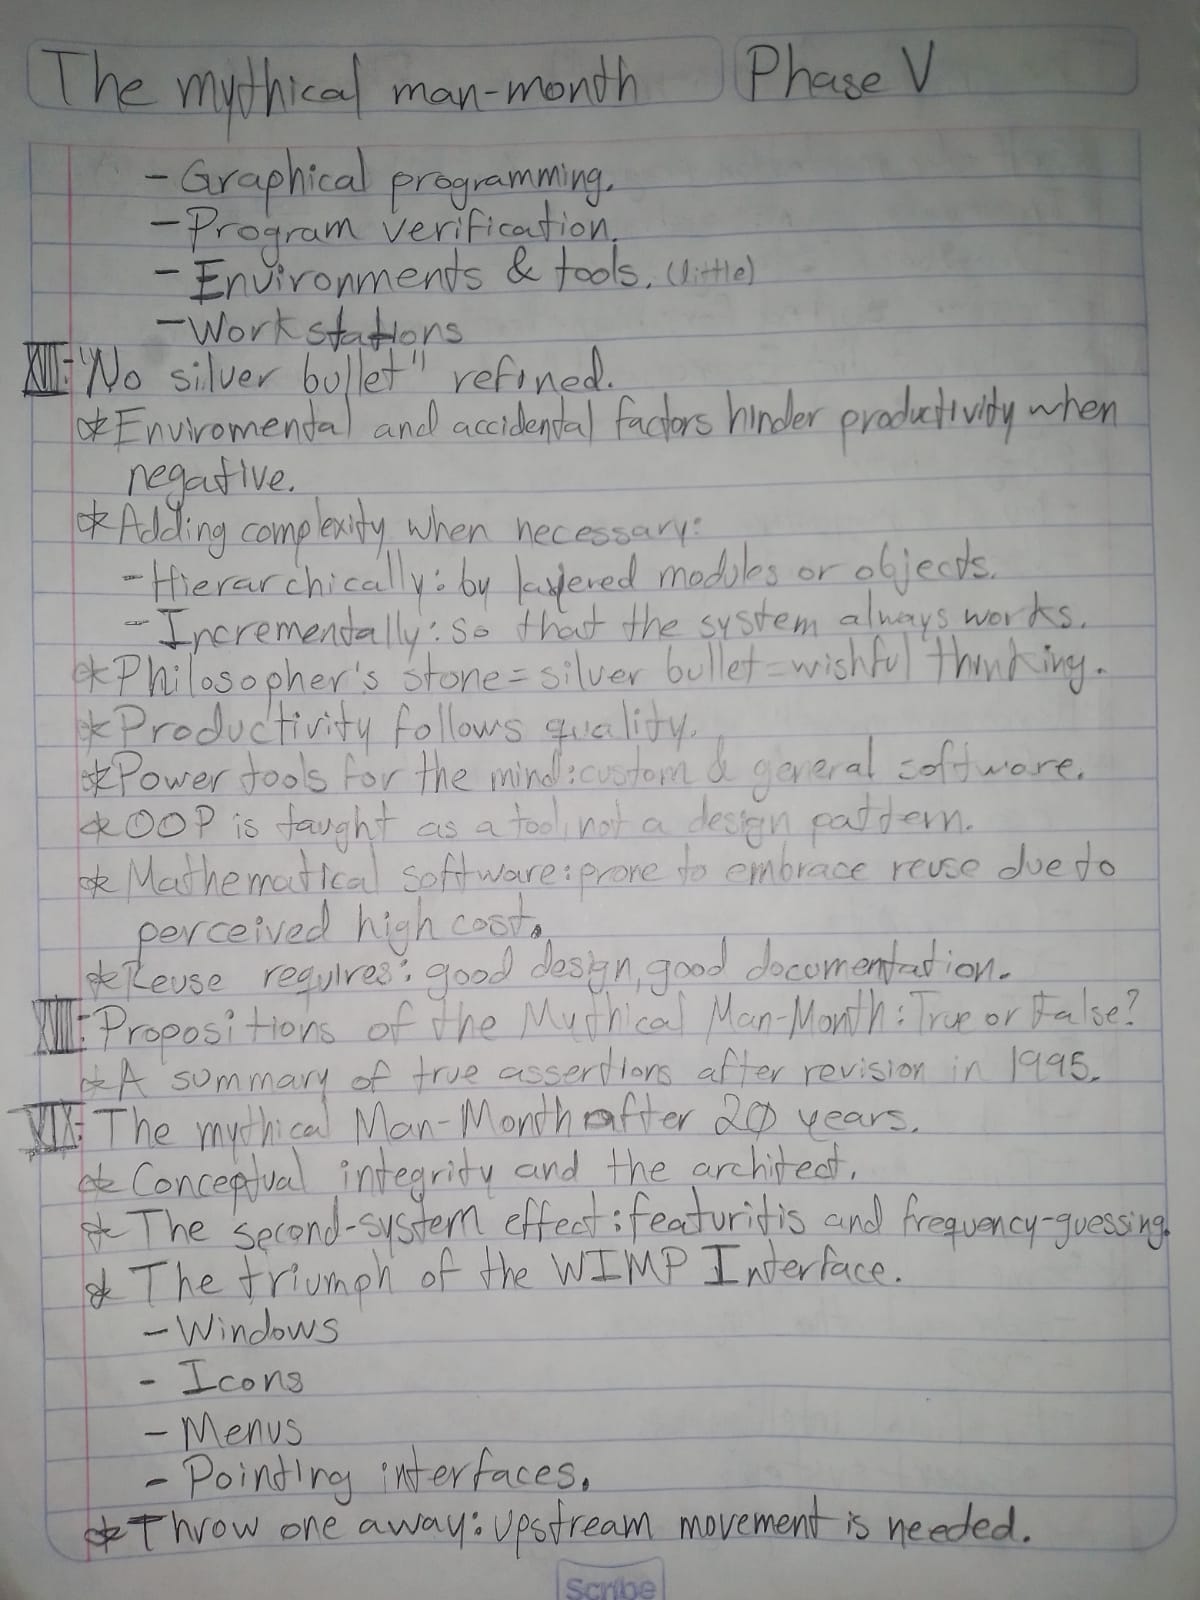 The mythical man-month Phase V
- Graphical programming.
- Program verification.
- Environments & tools. (little)
- Workstations
XVII: "No silver bullet" refined.
* Enviromental and accidental factors hinder productivity when
negative.
* Adding complexity when necessary:
- Hierarchically: by layered modules or objects.
- Incrementally: so that the system always works.
* Philosopher's stone = silver bullet = wishful thinking.
* Productivity follows quality.
* Power tools for the mind: custom & general software.
* OOP is taught as a tool, not a design pattern.
* Mathematical software: prone to embrace reuse due to
perceived high cost.
* Reuse requires: good design, good documentation.
XVIII: Propositions of the Mythical Man-Month: True or False?
* A summary of true assertions after revision in 1995.
VIX: The mythical Man-Month after 20 years.
* Conceptual integrity and the architect.
* The second-system effect: featuritis and frequency-guessing.
* The triumph of the WIMP Interface.
- Windows
- Icons
- Menus
- Pointing interfaces.
* Throw one away: upstream movement is needed.
Scribe